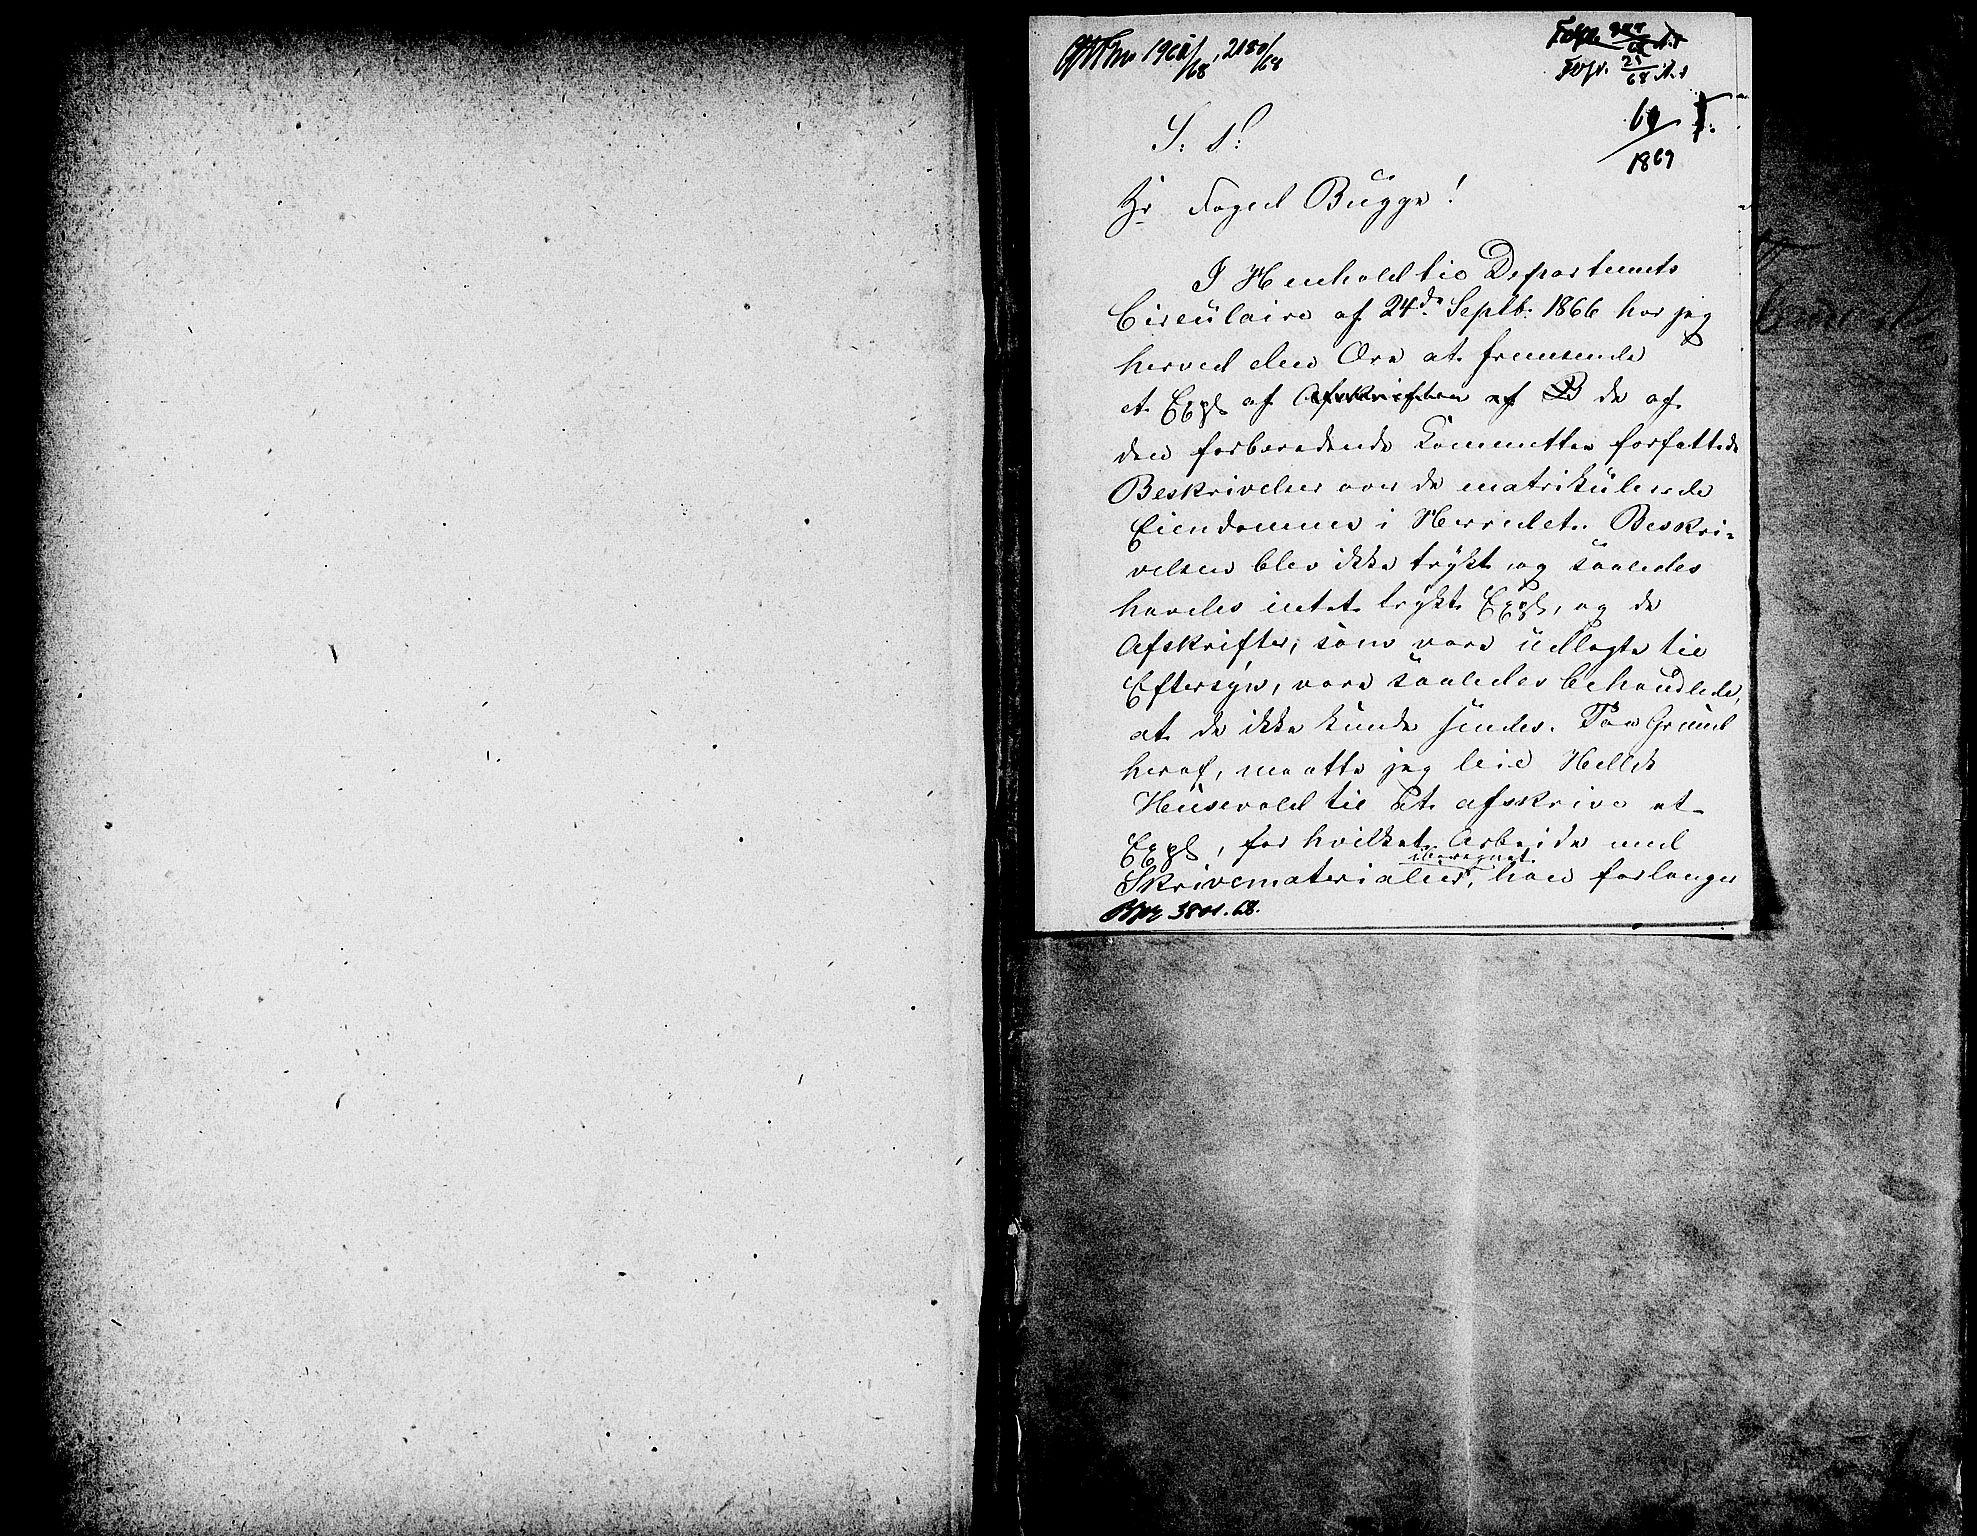 1961/68, 2180/68
69/1869
S. T.
Hr Foged Bugge!
I Henhold til Departemets
Circulaire af 24de Septb. 1866 har jeg
herved den Ære at fremsende
et Expl af Afskriften af B de af
den forberedende Committee forfattede
Beskrivelser over de matrikulerede
Eiendomme i Herredet. Beskri-
velsen blev ikke trykt og saaledes
havdes intet trykt Expl, og de
Afskrifter, som vare udlagte til
Eftersyn, vare saaledes behandlede,
at de ikke kunde sendes. Paa Grund
heraf, maatte jeg leie Helleik
Husevold til at afskrive et
Expl, for hvilket Arbeide med
iberegnet
Skrivematerialier, han forlanger
3801.68.